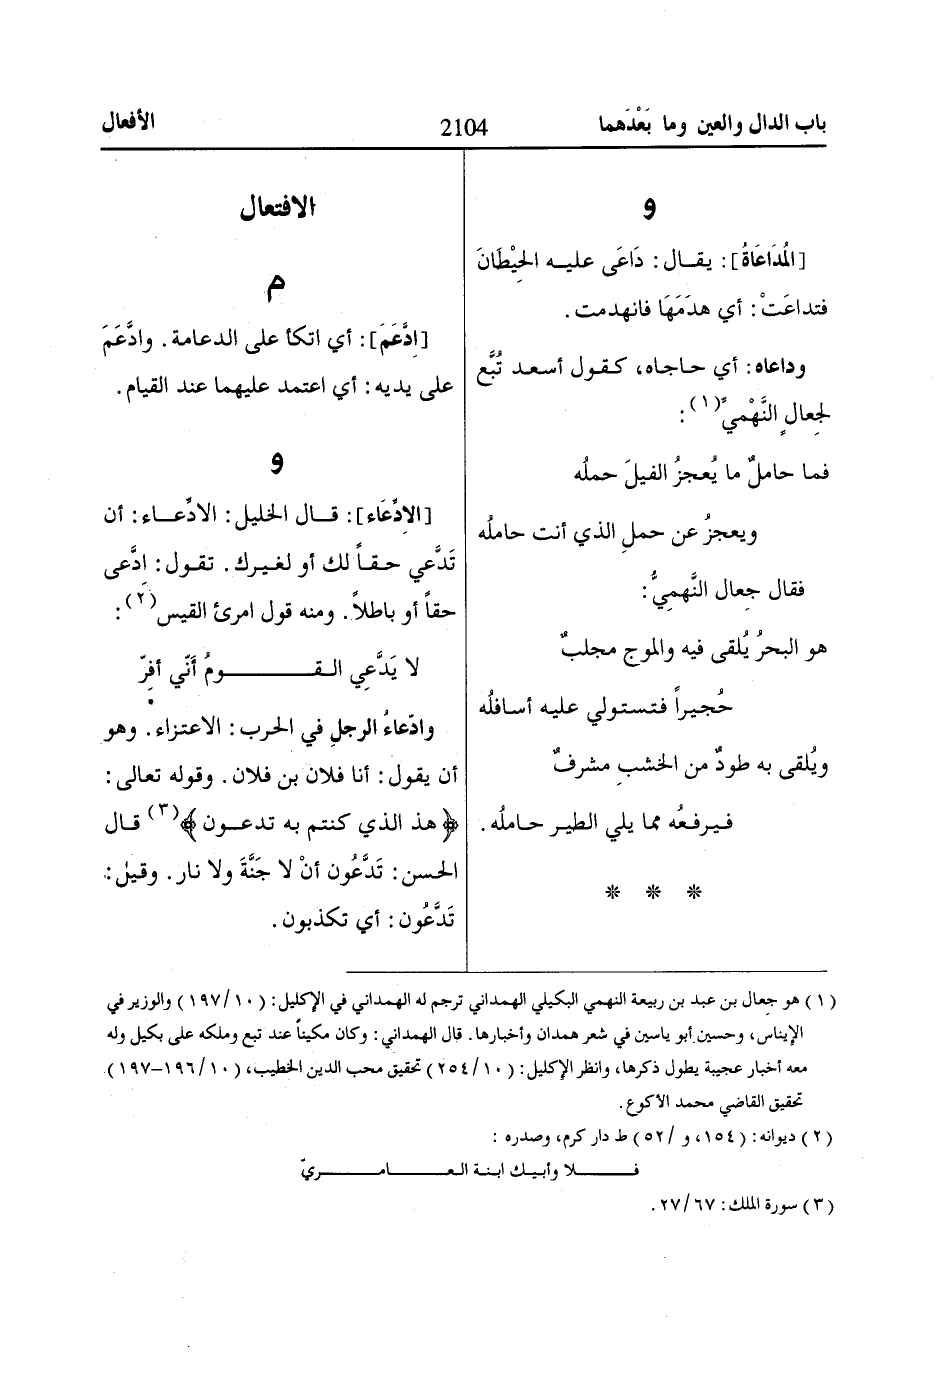 باب الدال والعين وما بَعْدَهما
2104
الأفعال
و
[المُدَاعَاةُ]: يقال: دَاعَى عليه الحِيْطَانَ
فتداعَتْ: أي هدَمَهَا فانهدمت.
وداعاه: أي حاجاه، كقول أسعد تُبَّع
لجِعالٍ النَّهْميِّ(١):
فما حاملٌ ما يُعجزُ الفيلَ حملُه
ويعجزُ عن حملِ الذي أنت حاملُه
فقال جِعال النَّهميُّ:
هو البحرُ يُلقى فيه والموج مجلبٌ
حُجيراً فتستولي عليه أسافلُه
ويُلقى به طودٌ من الخشبِ مشرفٌ
فيرفعُه مما يلي الطير حاملُه.
* * *
الافتعال
م
[ادَّعَمَ]: أي اتكأ على الدعامة. وادَّعَمَ
على يديه: أي اعتمد عليهما عند القيام.
و
[الادِّعَاء]: قال الخليل: الادِّعاء: أن
تَدَّعي حقاً لك أو لغيرك. تقول: ادَّعى
حقاً أو باطلاً. ومنه قول امرئ القيس(٢):
لا يَدَّعِي القومُ أنّي أفِرّ
وادّعاءُ الرجلِ في الحرب: الاعتزاء. وهو
أن يقول: أنا فلان بن فلان. وقوله تعالى:
﴿هذ الذي كنتم به تدعون﴾(٣) قال
الحسن: تَدَّعُون أنْ لا جَنَّةَ ولا نار. وقيل:
تَدَّعُون: أي تكذبون.
(١) هو جِعال بن عبد بن ربيعة النهمي البكيلي الهمداني ترجم له الهمداني في الإكليل: (١٩٧/١٠) والوزير في
الإيناس، وحسين أبو ياسين في شعر همدان وأخبارها. قال الهمداني: وكان مكيناً عند تبع وملكه على بكيل وله
معه أخبار عجيبة يطول ذكرها، وانظر الإكليل: (٢٥٤/١٠) تحقيق محب الدين الخطيب، (١٩٦/١٠-١٩٧)
تحقيق القاضي محمد الأكوع.
(٢) ديوانه: (١٥٤، و /٥٢) ط دار كرم، وصدره:
فلا وأبيك ابنة العامريّ
(٣) سورة الملك: ٢٧/٦٧.